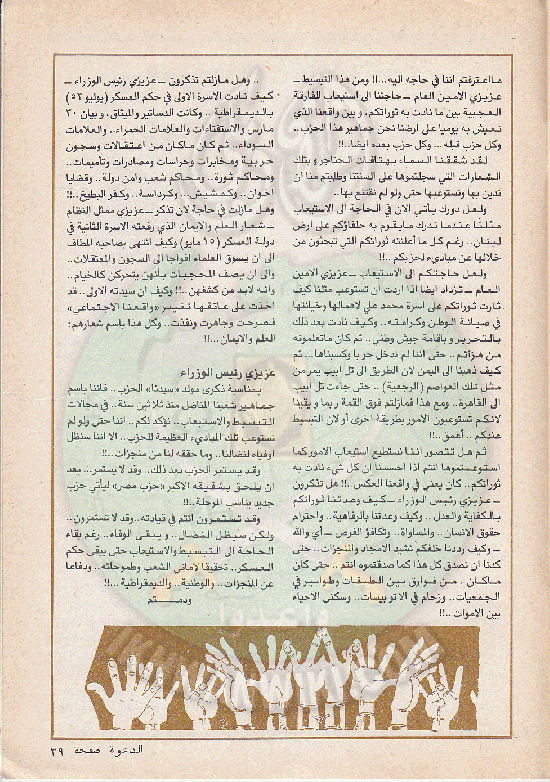 ما اعترفتم اننا في حاجه اليه..!! ومن هذا التبسيط ــ
عزيزي الامين العام ــ حاجتنا الى استيعاب المفارقة
العجيبة بين ما نادت به ثوراتكم ، وبين واقعنا الذي
نعيش به يوميا على ارضنا نحن جماهير هذا الحزب ..
وكل حزب قبله .. وكل حزب بعده ايضا ..!!
لقد شققنا السماء بهتافات الحناجر وبتلك
الشعارات التي سجلتموها على السنتنا وطلبتم منا ان
ندين بها ونستوعبها حتى ولو لم نقتنع بها ..
ولعل دورك يأتي الان في الحاجة الى الاستيعاب
مثلنا عندما ندرك مايقوم به حلفاؤكم على ارض
لبنان .. رغم كل ما أعلنته ثوراتكم التي تبحثون من
خلالها عن مباديء لحزبكم ..!!
ولعل حاجتكم الى الاستيعاب ــ عزيزي الامين
العام ــ تزداد ايضا اذا اردت ان تستوعب مثلنا كيف
ثارت ثوراتكم على اسرة محمد علي لاهمالها وخيانتها
في صيانة الوطن وكرامته .. وكيف نادت بعد ذلك
بالتحرير وباقامة جيش وطني .. ثم كان ماتعلمونه
من هزائم .. حتى اننا لم ندخل حربا وكسبناها .. ثم
كيف ذهبنا الى اليمن لان الطريق الى تل ابيب يمر من
مثل تلك العواصم (الرجعية) .. حتى جاءت تل ابيب
الى القاهرة .. ومع هذا فمازلتم فوق القمة ربما و يقينا
لانكم تستوعبون الامور بطريقة اخرى أو لان التبسيط
عندكم .. أعمق ..!!
ثم هل تتصور اننا نستطيع استيعاب الامور كما
استوعبتموها انتم اذا احسسنا ان كل شيء نادت به
ثوراتكم .. كان يعني في واقعنا العكس ..!! هل تذكرون
ــ عزيزي رئيس الوزراء ــ كيف وعدتنا ثوراتكم
بالكفاية والعدل .. وكيف وعدتنا بالرفاهية .. واحترام
حقوق الانسان .. والمساواة .. وتكافؤ الفرص ــ أي والله
ــ وكيف رددنا خلفكم نشيد الامجاد والمنجزات .. حتى
كدنا ان نصدق كل هذا كما صدقتموه انتم .. حتى كان
ماكان .. من فوارق بين الطبقات وطوابير في
الجمعيات .. وزحام في الاتوبيسات .. وسكنى الاحياء
بين الاموات ..!!
.. وهل مازلتم تذكرون ــ عزيزي رئيس الوزراء ــ
كيف نادت الاسرة الاولى في حكم العسكر (يوليو ٥٢)
بالديمقراطية .. وكانت الدساتير والميثاق ، وبيان ٣٠
مارس والاستفتاءات والعلامات الحمراء.. والعلامات
السوداء.. ثم كان ماكان من اعتقالات وسجون
حربية ومخابرات وحراسات ومصادرات وتأميمات..
ومحاكم ثورة.. ومحاكم شعب وامن دولة .. وقضايا
اخوان .. وكمشيش .. وكرداسة .. وكفر البطيخ ..!!
وهل مازلت في حاجة لان تذكر ــ عزيزي ممثل النظام
ــ شعار العلم والايمان الذي رفعته الاسرة الثانية في
دولة العسكر (١٥ مايو) وكيف انتهى بصاحبه المطاف
الى ان يسوق العلماء افواجا الى السجون والمعتقلات ..
والى ان يصف المحجبات بأنهن يتحركن كالخيام ..
وانه لابد من كشفهن ..!! وكيف ان سيدته الاولى .. قد
اخذت على عاتقها تغيير «واقعنا الاجتماعي»
فصرحت وجاهرت ونفذت .. وكل هذا باسم شعارهم:
العلم والايمان ...!!
عزيزي رئيس الوزراء
بمناسبة ذكرى مولد «سيدنا» الحزب .. فاننا باسم
جماهير شعبنا المناضل منذ ثلاثين سنة .. في مجالات
التبسيط والاستيعاب .. نؤكد لكم .. اننا حتى ولو لم
نستوعب تلك المباديء العظيمة للحزب .. الا اننا سنظل
أوفياء لنضالنا .. وما حققه لنا من منجزات ..!!
وقد يستمر الحزب بعد ذلك .. وقد لا يستمر.. بعد
ان يلحق بشقيقه الاكبر «حزب مصر» ليأتي حزب
جديد يناسب المرحلة ..!!
وقد تستمرون انتم في قيادته .. وقد لا تستمرون ..
ولكن سيظل النضال .. ويبقى الوفاء.. رغم بقاء
الحاجة الى التبسيط والاستيعاب حتى يبقى حكم
العسكر.. تحقيقا لاماني الشعب وطموحاته .. ودفاعا
عن المنجزات .. والوطنية .. والديمقراطية ..!!
ودمـــتم
الدعوة صفحة ٣٩